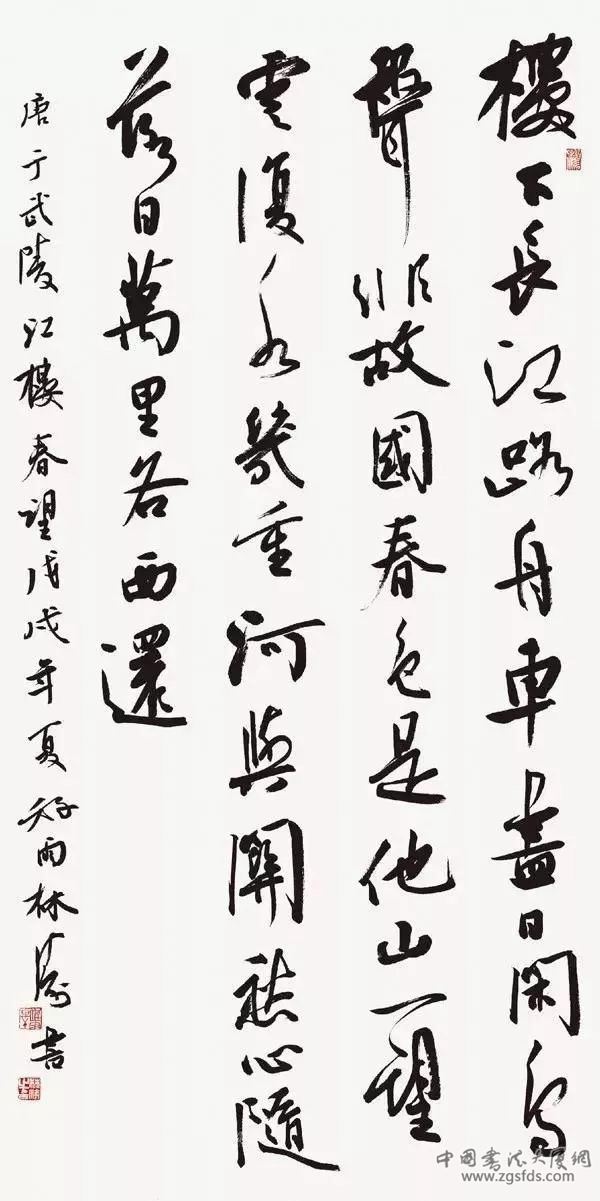 樓下長江路舟車盡日閑鳥
聲非故國春色是他山一望
雲復水幾重河與關愁心隨
落日萬里各西還
唐于武陵江樓春望戊戌年夏雨林書
中國書法大廈網
www.zgsfds.com